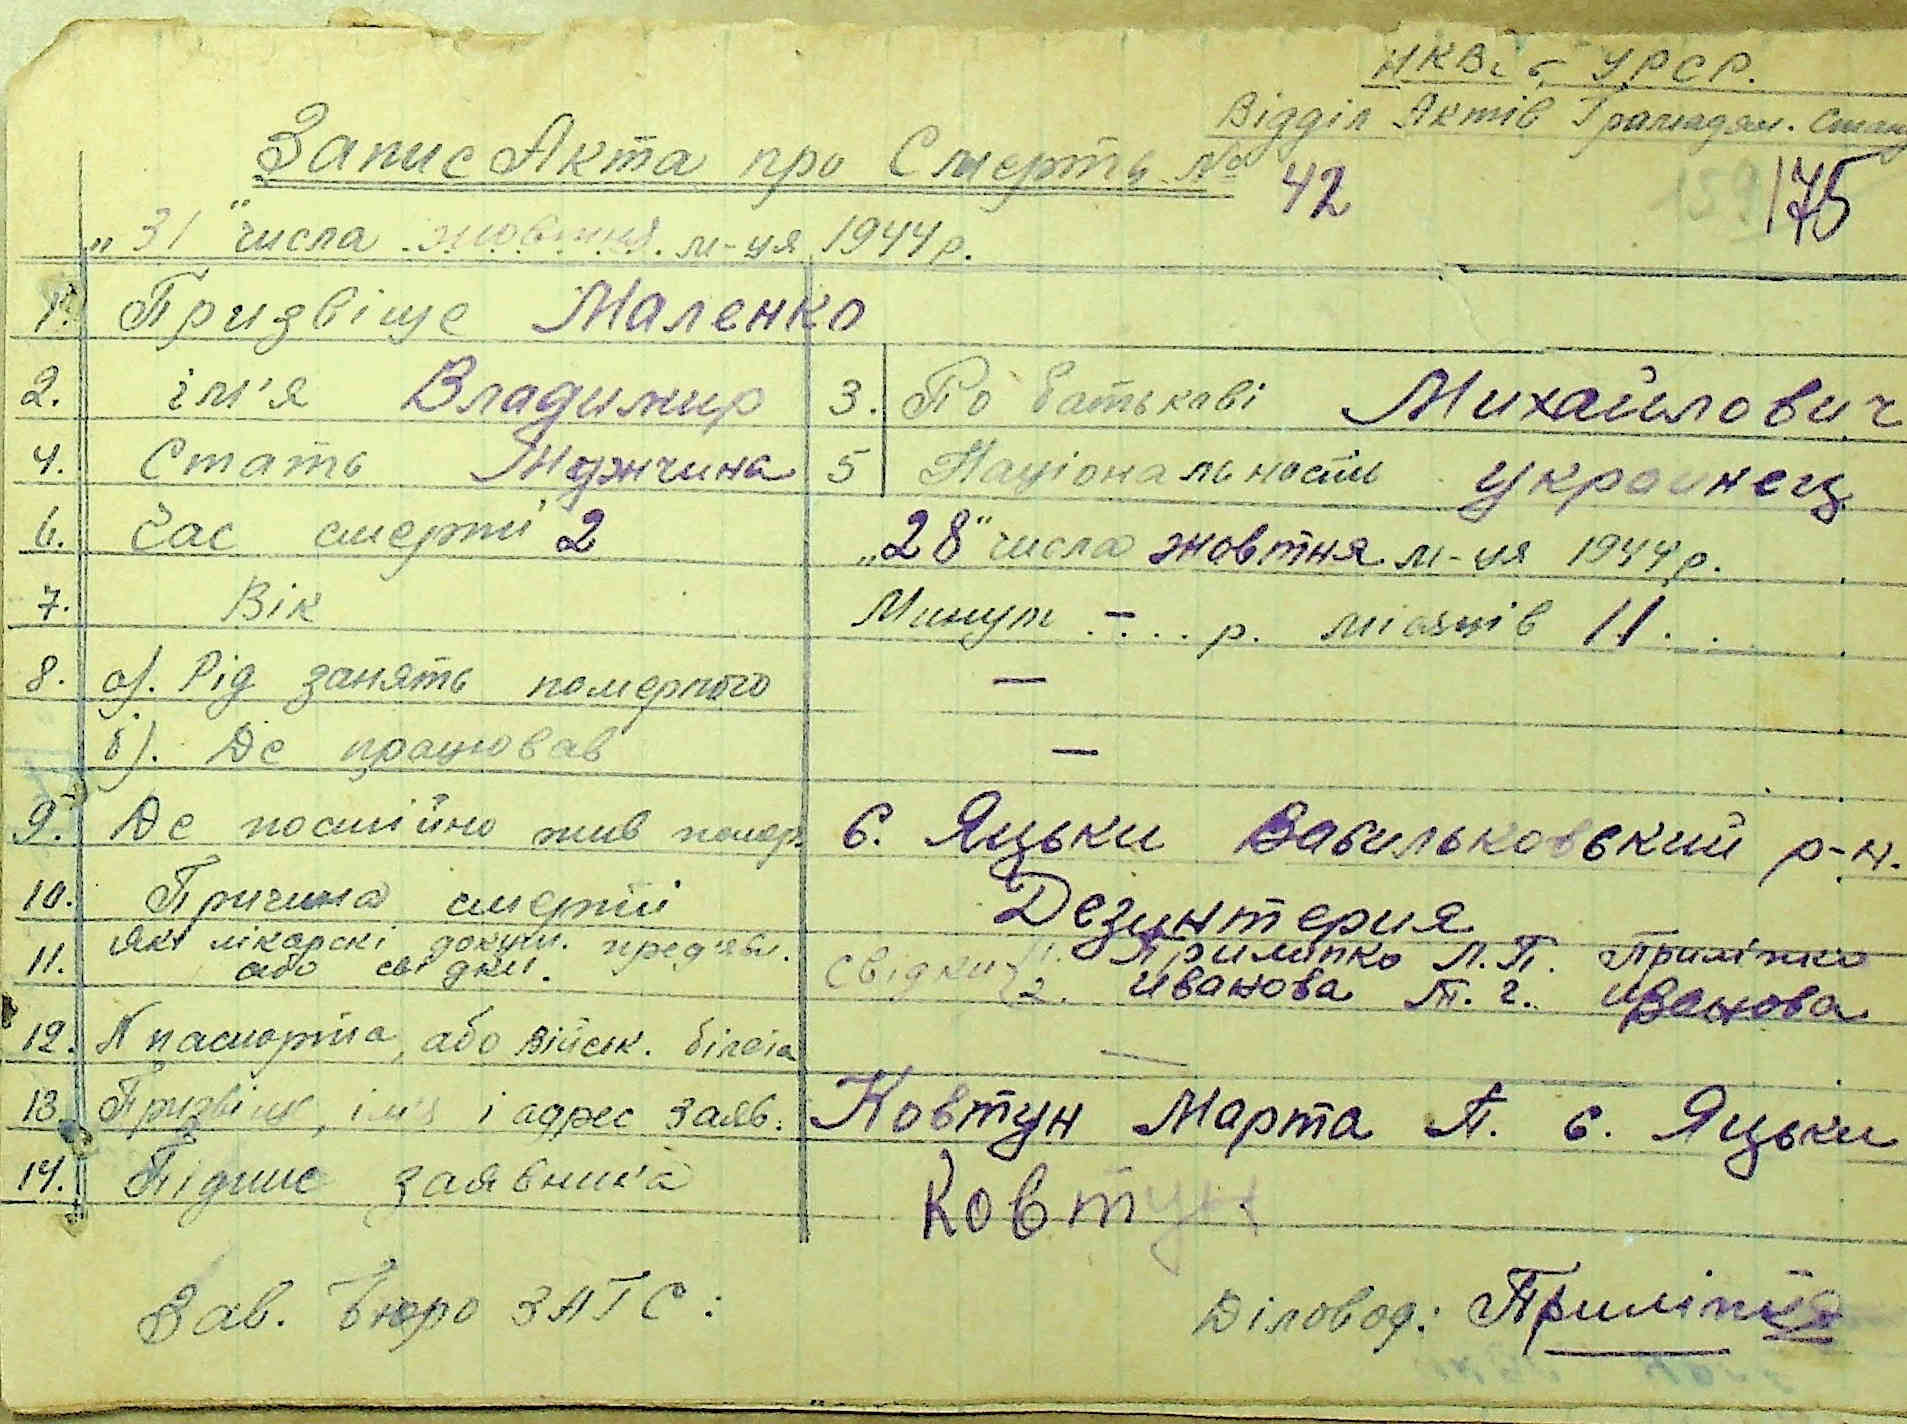 НКВС УРСР.
Відділ Актів Громадян. Стану
Запис Акта про Смерть № 42
175
„31" числа жовтня м-ця 1944 р.
1. Призвіще Маленко
2. ім'я Владимир 3. По батькові Михайлович
4. Стать Мужчина 5 Національность украинец
6. Час смерти 2 „28" числа жовтня м-ця 1944 р.
7. Вік Минуло – р. місяців 11
8. а). Рід занять померлого —
б). Де працював —
9. Де постійно жив помер. с. Яцьки Васильковский р-н.
10. Причина смерті Дезинтерия
11. Які лікарскі докум. пред'явл. або свідки. Свідки
1. Прилипко Л. П. Приліпко
2. Иванова Т. г. Иванова
12. № паспорта, або військ. білета —
13. Призвіще, ім'я і адрес заяв. Ковтун Марта П. с. Яцьки
14. Підпис заявника Ковтун
Зав. Бюро ЗАГС:
Діловод: Приліпко